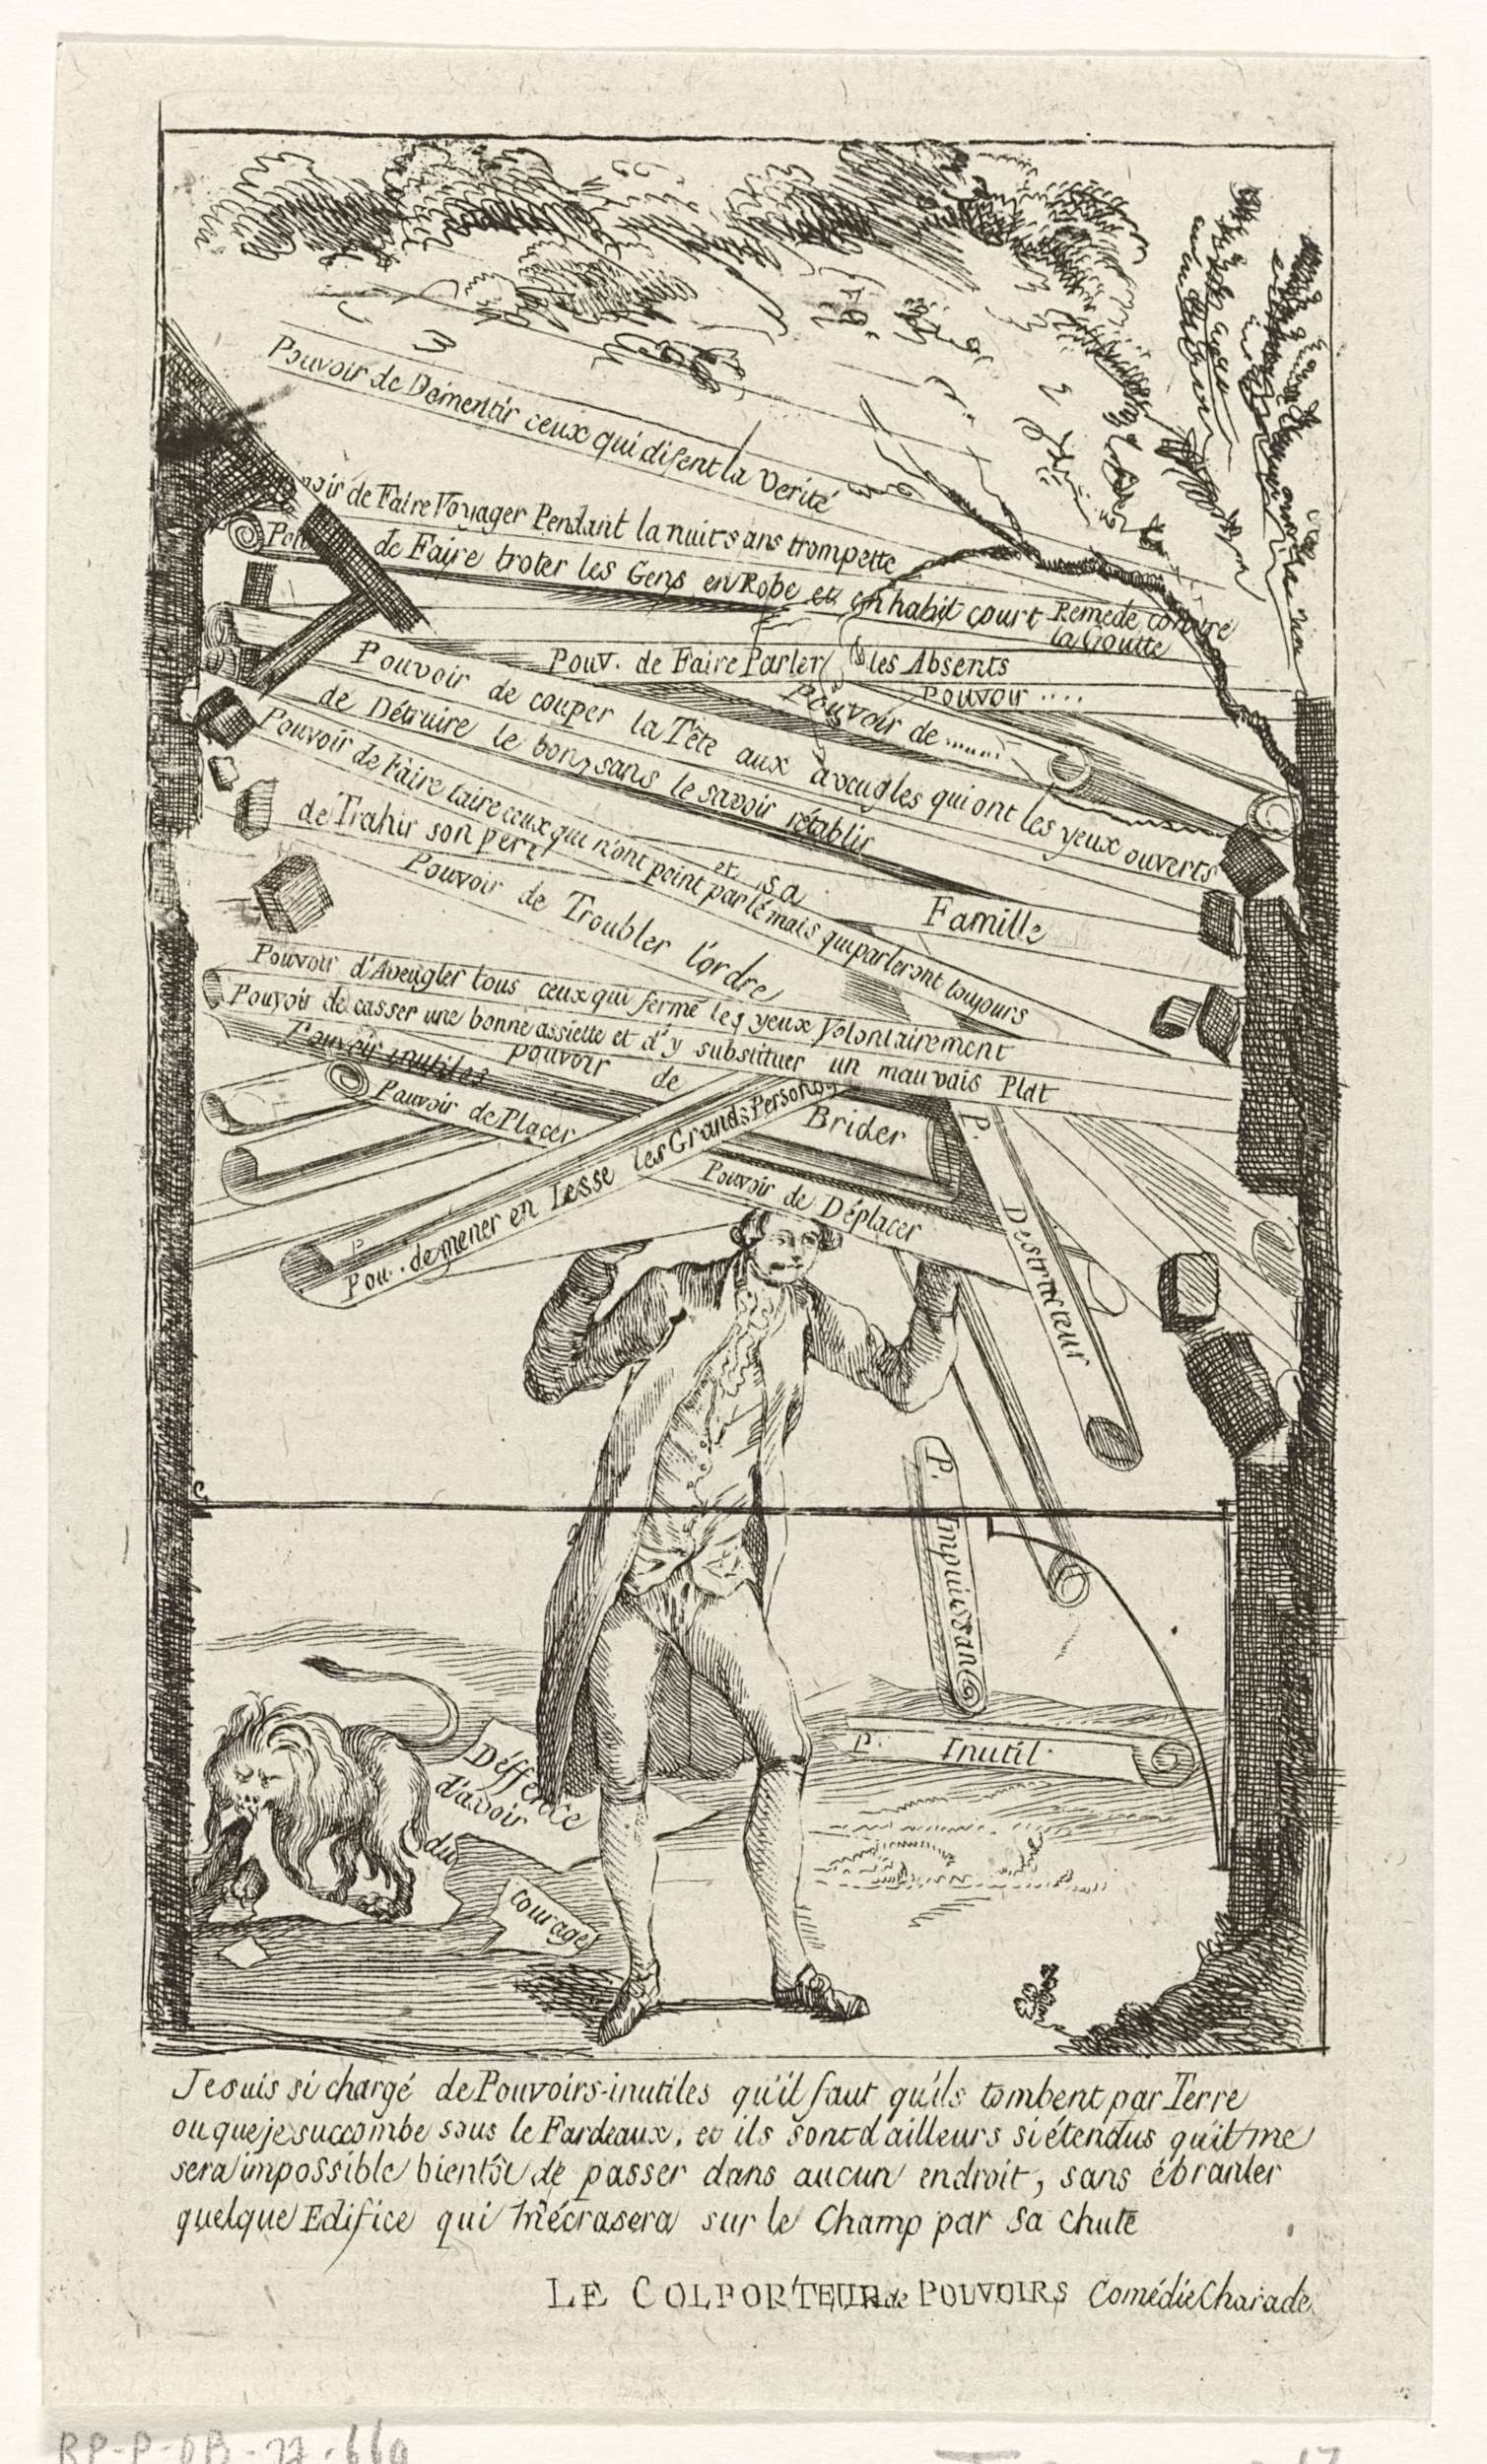 Pouvoir de Démentir ceux qui disent la Verité
voir de Faire Voyager Pendant la nuit sans trompette
Pou de Faire troter les Gens en Robe et en habit court Remede contre
la Goutte
Pouv. de Faire Parler les Absents
Pouvoir ....
Pouvoir de ......
Pouvoir de couper la Tête aux aveugles qui ont les yeux ouverts
de Détruire le bon, sans le savoir rétablir
Pouvoir de Faire taire ceux qui n'ont point parlé mais qui parleront toujours
de Trahir son pere
et sa
Famille
Pouvoir de Troubler l'ordre
Pouvoir d'Aveugler tous ceux qui ferme les yeux Volontairement
Pouvoir de casser une bonne assiette et d'y substituer un mauvais Plat
Pouvoir inutiles
pouvoir de
Brider
Pouvoir de Placer
Pou.. de mener en Lesse les Grands Personag
Pouvoir de Déplacer
P. Destructeur
P. Impuissan
P. Inutil.
Défference
d'avoir
du
courage
Je suis si chargé de Pouvoirs-inutiles qu'il faut qu'ils tombent par Terre
ou que je succombe sous le Fardeaux, et ils sont d'ailleurs si étendus qu'il me
sera impossible bientôt de passer dans aucun endroit, sans ébranler
quelque Edifice qui m'écrasera sur le Champ par sa chute
LE COLPORTEUR de POUVOIRS Comédie Charade.
RP-P-OB-77.66a